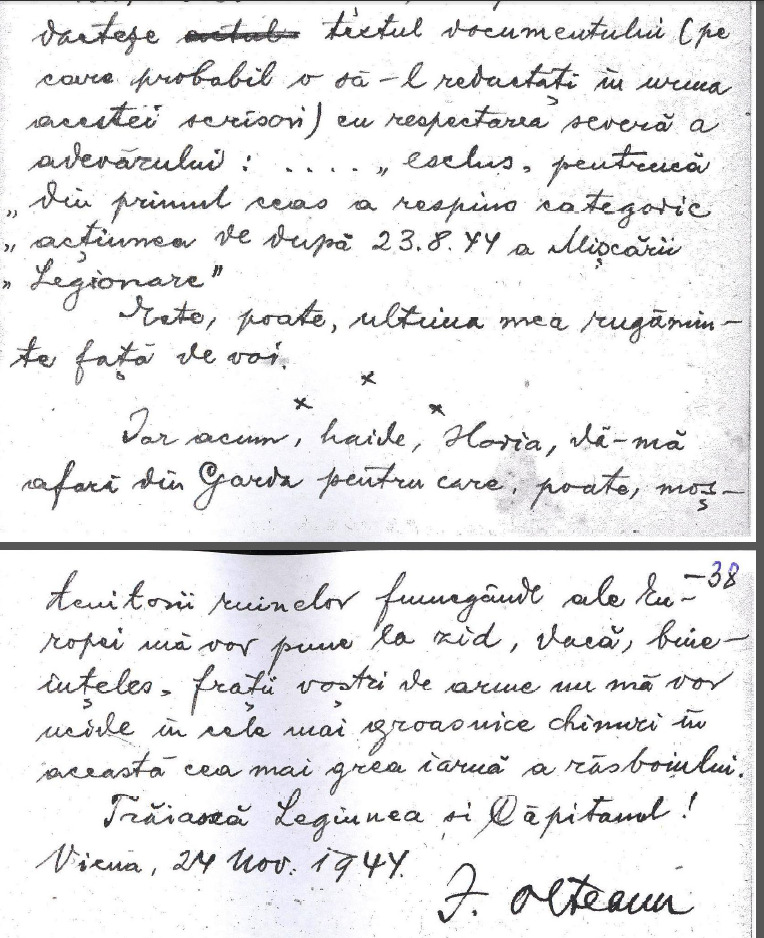 textul documentului (pe
care probabil o să-l redactați în urma
acestei scrisori) cu respectarea severă a
adevărului : .... „ exclus, pentrucă
„ din primul ceas a respins categoric
„ acțiunea de după 23.8.44 a Mișcării
„ Legionare"
Este, poate, ultima mea rugămin-
te față de voi.
x
x x
Iar acum, haide, Horia, dă-mă
afară din Garda pentru care, poate, moș-
-38
tenitorii ruinelor fumegânde ale Eu-
ropei mă vor pune la zid, dacă, bine-
înțeles, frații voștri de arme nu mă vor
ucide în cele mai groasnice chinuri în
această cea mai grea iarnă a răsboiului.
Trăiască Legiunea și Căpitanul!
Viena, 24 Nov. 1944.
I. Olteanu